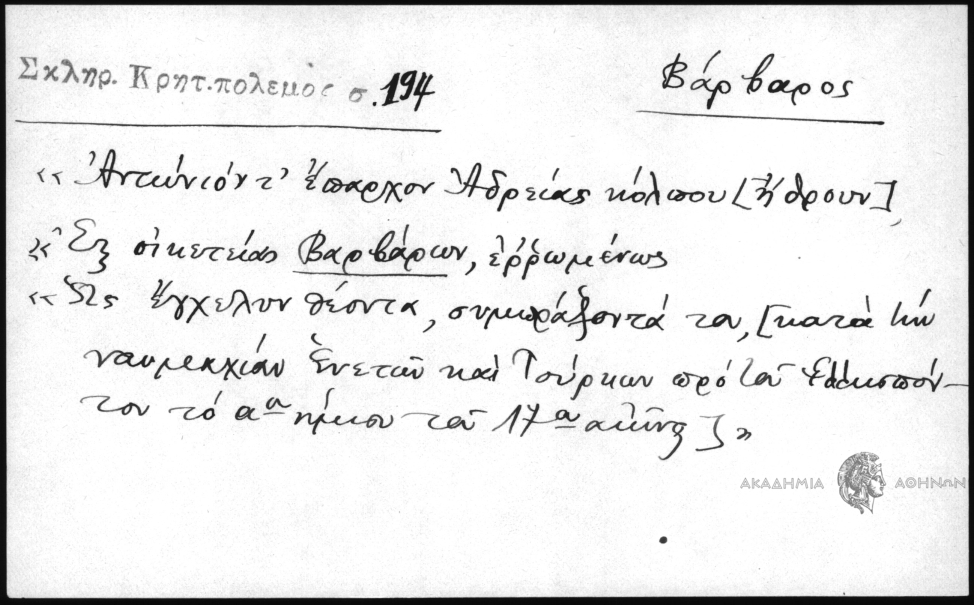 Σκληρ. Κρητ. πολεμος σ. 194
Βάρβαρος
«Ἀντώνιόν τ' ἔπαρχον Ἀδρείας κόλπου [ἤθρουν]
«Ἐξ οἰκετείας Βαρβάρων, ἐῤῥωμένως
«Ὡς ἔγχελυν θέοντα, συμπράξοντά του, [κατὰ τὴν
ναυμαχίαν Ἑνετῶν καὶ Τούρκων πρὸ τοῦ Ἑλλησπόν-
του τὸ αον ἥμισυ τοῦ 17ου αἰῶνος]»
ΑΚΑΔΗΜΙΑ ΑΘΗΝΩΝ